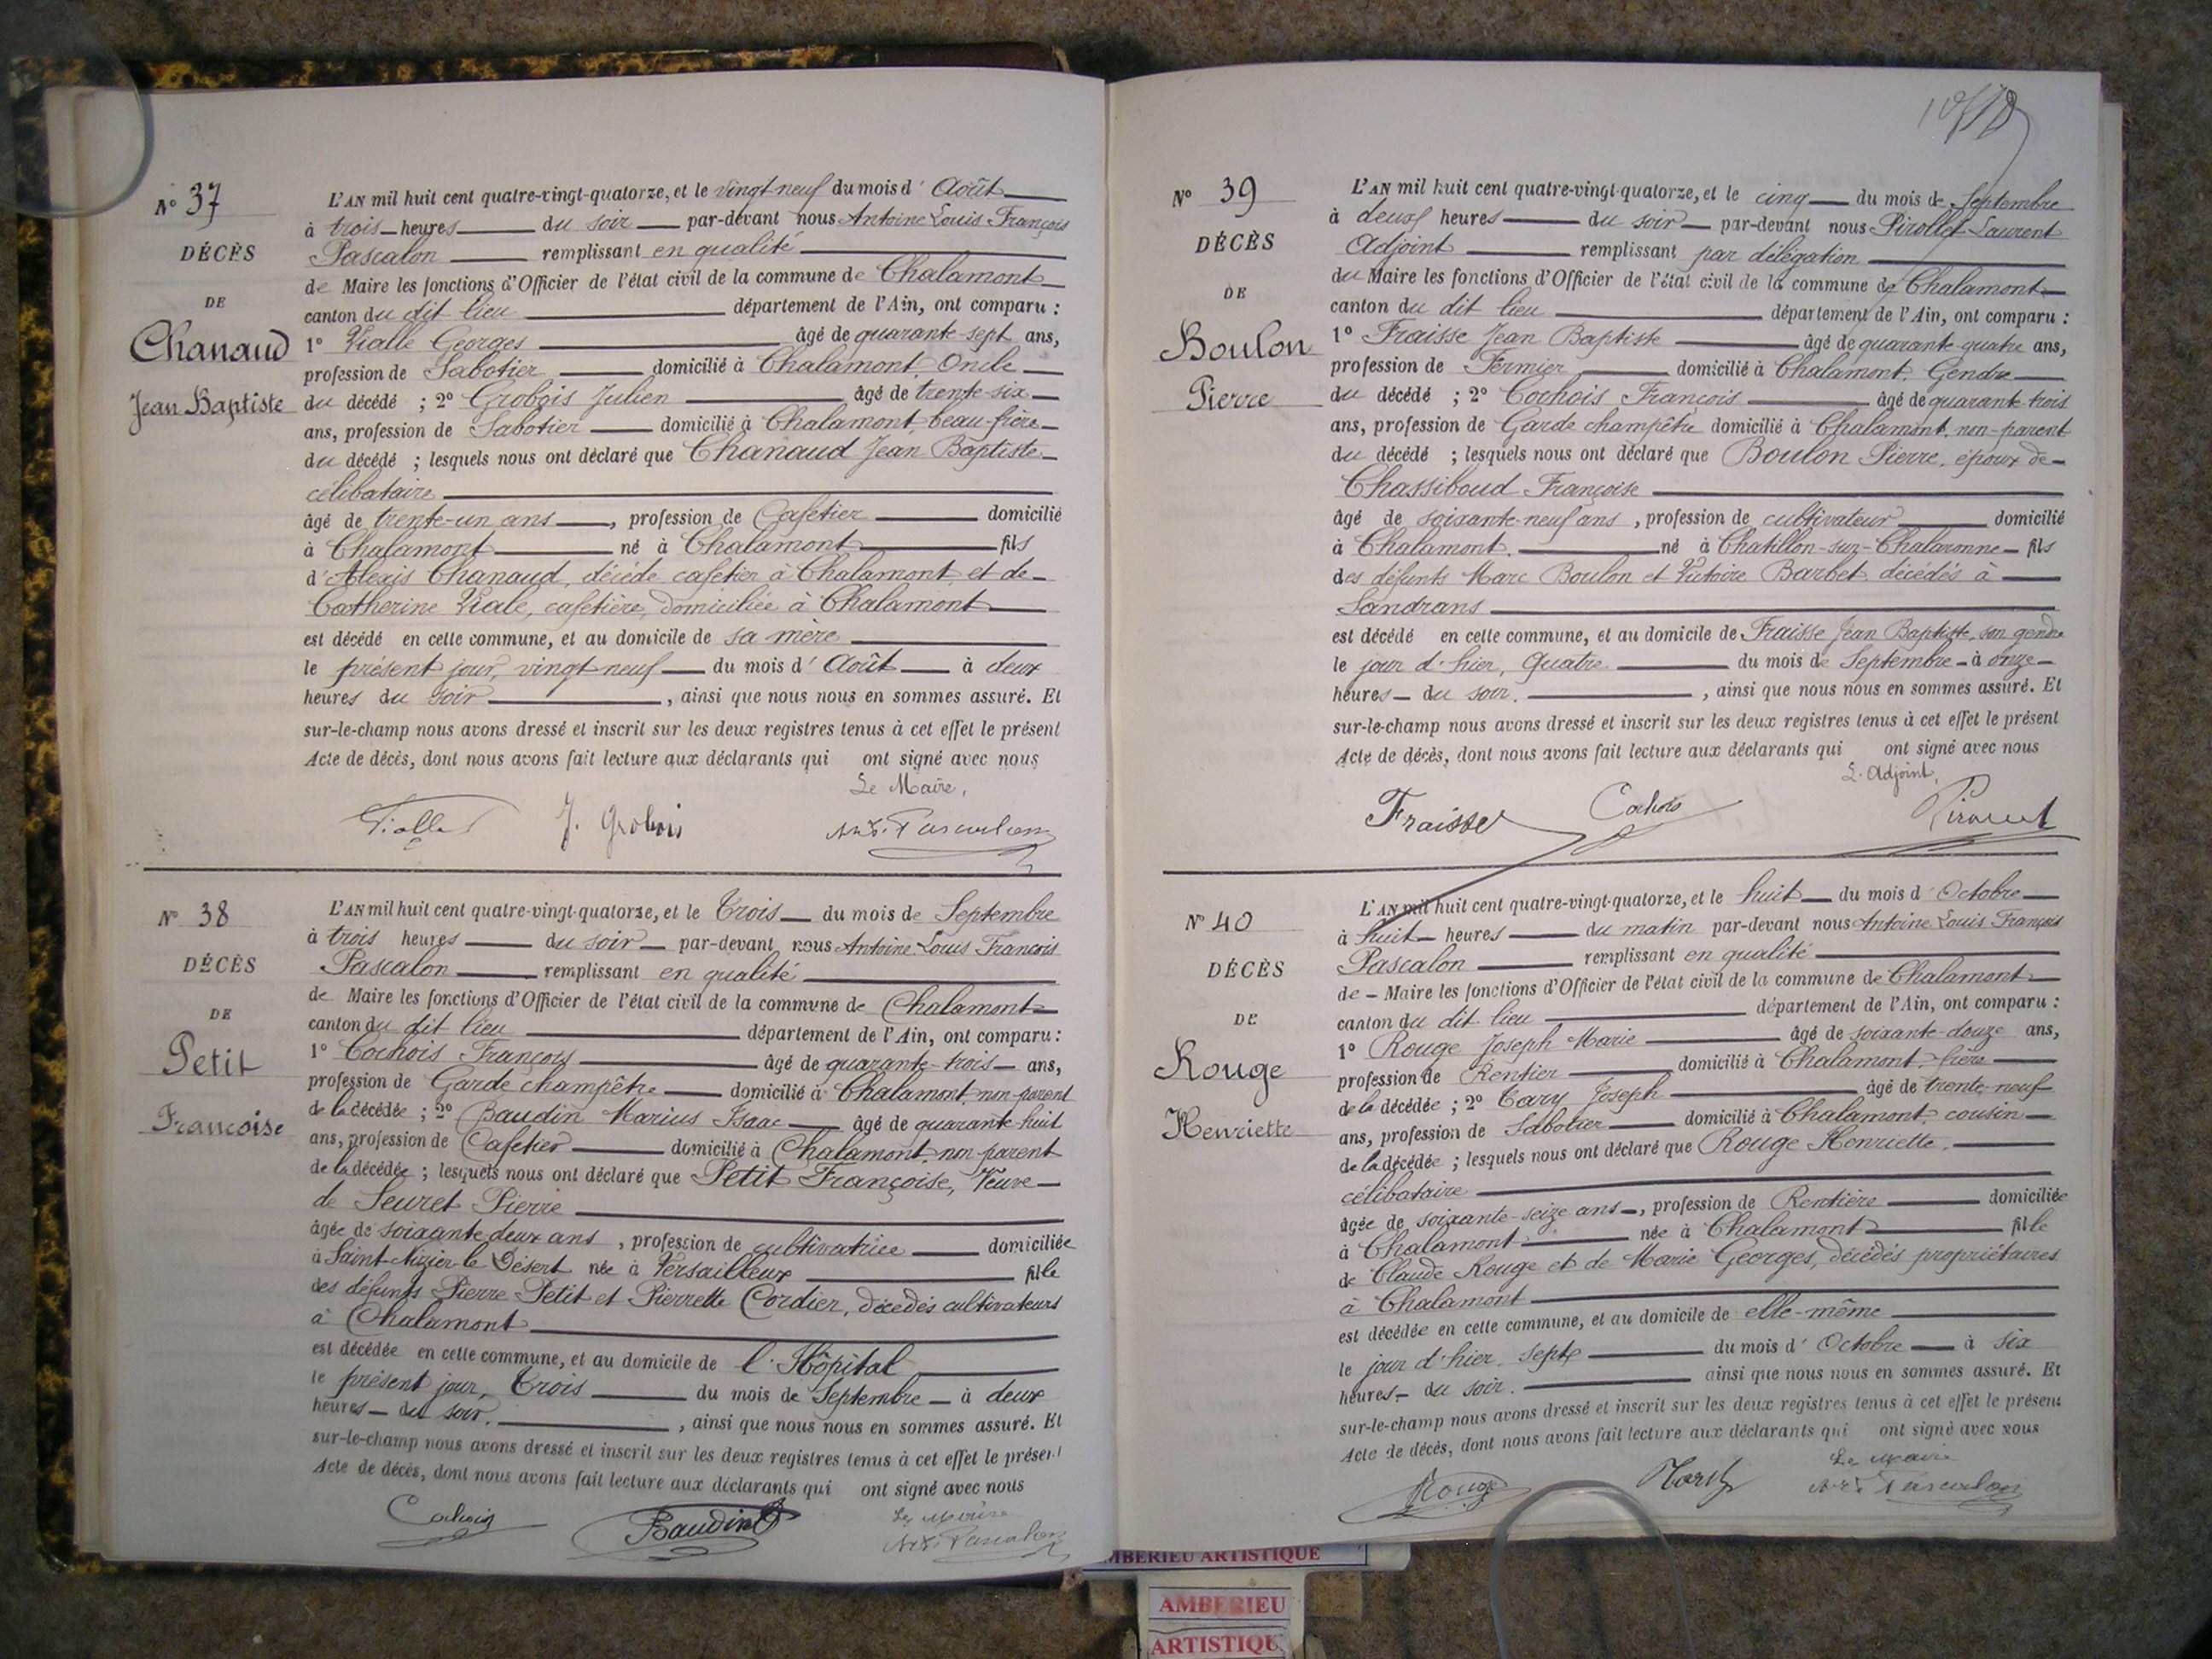 N° 37
DÉCÈS
DE
Chanaud
Jean Baptiste
L'AN mil huit cent quatre-vingt-quatorze, et le vingt neuf du mois d'Août
à trois heures du soir par-devant nous Antoine Louis François
Pascalon remplissant en qualité
de Maire les fonctions d'Officier de l'état civil de la commune de Chalamont
canton du dit lieu département de l'Ain, ont comparu :
1° Vialle Georges âgé de quarante-sept ans,
profession de Sabotier domicilié à Chalamont, Oncle
du décédé ; 2° Grobois Julien âgé de trente-six
ans, profession de Sabotier domicilié à Chalamont, beau-frère
du décédé ; lesquels nous ont déclaré que Chanaud Jean Baptiste
célibataire
âgé de trente-un ans, profession de Cafetier domicilié
à Chalamont né à Chalamont fils
d'Alexis Chanaud, décédé cafetier à Chalamont, et de
Catherine Viale, cafetière, domiciliée à Chalamont
est décédé en cette commune, et au domicile de sa mère
le présent jour, vingt neuf du mois d'Août à deux
heures du soir, ainsi que nous nous en sommes assuré. Et
sur-le-champ nous avons dressé et inscrit sur les deux registres tenus à cet effet le présent
Acte de décès, dont nous avons fait lecture aux déclarants qui ont signé avec nous
Le Maire,
J. Grobois
N° 38
DÉCÈS
DE
Petit
Francoise
L'AN mil huit cent quatre-vingt-quatorze, et le Trois du mois de Septembre
à trois heures du soir par-devant nous Antoine Louis Francois
Pascalon remplissant en qualité
de Maire les fonctions d'Officier de l'état civil de la commune de Chalamont
canton du dit lieu département de l'Ain, ont comparu :
1° Cochois François âgé de quarante-trois ans,
profession de Garde champêtre domicilié à Chalamont, non-parent
de la décédée ; 2° Baudin Marius Isaac âgé de quarante-huit
ans, profession de Cafetier domicilié à Chalamont, non parent
de la décédée ; lesquels nous ont déclaré que Petit Françoise, Veuve
de Seuret Pierre
âgée de soixante-deux ans, profession de cultivatrice domiciliée
à Saint-Nizier-le Désert née à Versailleux fille
des défunts Pierre Petit et Pierrette Cordier, décédés cultivateurs
à Chalamont
est décédée en cette commune, et au domicile de l'Hôpital
le présent jour, Trois du mois de Septembre à deux
heures du soir, ainsi que nous nous en sommes assuré. Et
sur-le-champ nous avons dressé et inscrit sur les deux registres tenus à cet effet le présent
Acte de décès, dont nous avons fait lecture aux déclarants qui ont signé avec nous
Cochois
Baudin
Le Maire
N° 39
DÉCÈS
DE
Boulon
Pierre
L'AN mil huit cent quatre-vingt-quatorze, et le cinq du mois de Septembre
à deux heures du soir par-devant nous Pirollet Laurent
Adjoint remplissant par délégation
du Maire les fonctions d'Officier de l'état civil de la commune de Chalamont
canton du dit lieu département de l'Ain, ont comparu :
1° Fraisse Jean Baptiste âgé de quarante-quatre ans,
profession de Fermier domicilié à Chalamont, Gendre
du décédé ; 2° Cochois François âgé de quarante-trois
ans, profession de Garde champêtre domicilié à Chalamont, non-parent
du décédé ; lesquels nous ont déclaré que Boulon Pierre, époux de
Chassiboud Françoise
âgé de soixante-neuf ans, profession de cultivateur domicilié
à Chalamont. né à Chatillon-sur-Chalaronne fils
des défunts Marc Boulon et Victoire Barbet décédés à
Sandrans
est décédé en cette commune, et au domicile de Fraisse Jean Baptiste, son gendre
le jour d'hier, Quatre du mois de Septembre à onze
heures du soir, ainsi que nous nous en sommes assuré. Et
sur-le-champ nous avons dressé et inscrit sur les deux registres tenus à cet effet le présent
Acte de décès, dont nous avons fait lecture aux déclarants qui ont signé avec nous
L'Adjoint,
Fraisse
Cochois
N° 40
DÉCÈS
DE
Rouge
Henriette
L'AN mil huit cent quatre-vingt-quatorze, et le huit du mois d'Octobre
à huit heures du matin par-devant nous Antoine Louis François
Pascalon remplissant en qualité
de Maire les fonctions d'Officier de l'état civil de la commune de Chalamont
canton du dit lieu département de l'Ain, ont comparu :
1° Rouge Joseph Marie âgé de soixante-douze ans,
profession de Rentier domicilié à Chalamont, frère
de la décédée ; 2° Joseph âgé de trente-neuf
ans, profession de Sabotier domicilié à Chalamont, cousin
de la décédée ; lesquels nous ont déclaré que Rouge Henriette.
célibataire
âgée de soixante-seize ans, profession de Rentière domiciliée
à Chalamont née à Chalamont fille
de Claude Rouge et de Marie Georges, décédés propriétaires
à Chalamont
est décédée en cette commune, et au domicile de elle-même
le jour d'hier, Sept du mois d'Octobre à six
heures du soir. ainsi que nous nous en sommes assuré. Et
sur-le-champ nous avons dressé et inscrit sur les deux registres tenus à cet effet le présent
Acte de décès, dont nous avons fait lecture aux déclarants qui ont signé avec nous
Le Maire
Rouge
MBERIEU ARTISTIQUE
AMBERIEU
ARTISTIQU